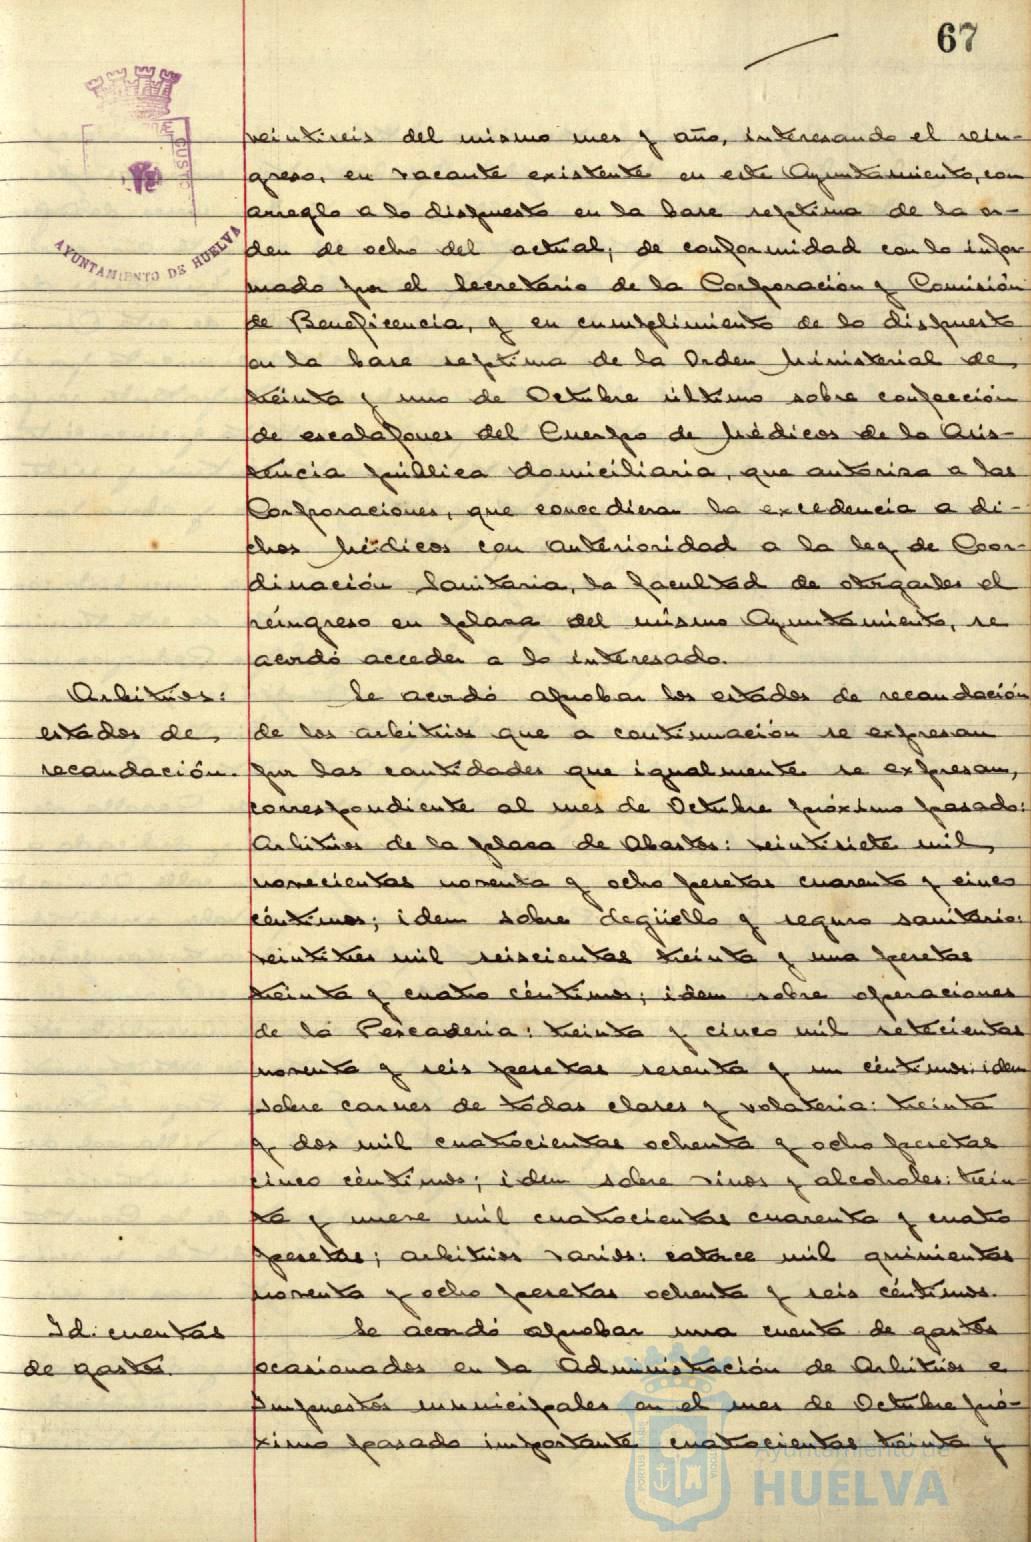 67
AYUNTAMIENTO DE HUELVA
veintiseis del mismo mes y año, interesando el rein-
greso, en vacante existente en este Ayuntamiento, con
arreglo a lo dispuesto en la base septima de la or-
den de ocho del actual; de conformidad con lo infor
mado por el Secretario de la Corporación y Comisión
de Beneficencia, y en cumplimiento de lo dispuesto
en la base septima de la Orden Ministerial de
treinta y uno de Octubre último sobre confección
de escalafones del Cuerpo de Médicos de la Asis-
tencia pública domiciliaria, que autoriza a las
Corporaciones, que concedieran la excedencia a di-
chos Médicos con anterioridad a la ley de Coor-
dinación Sanitaria, la facultad de otorgarles el
reingreso en plaza del mismo Ayuntamiento, se
acordó acceder a lo interesado.
Arbitrios:
estados de
recaudación.
Se acordó aprobar los estados de recaudación
de los arbitrios que a continuación se expresan
por las cantidades que igualmente se expresan,
correspondiente al mes de Octubre próximo pasado:
Arbitrios de la plaza de Abastos: veintisiete mil
novecientas noventa y ocho pesetas cuarenta y cinco
céntimos; idem sobre degüello y seguro sanitario:
veintitres mil seiscientas treinta y una pesetas
treinta y cuatro céntimos; idem sobre operaciones
de la Pescaderia: treinta y cinco mil setecientas
noventa y seis pesetas sesenta y un céntimos: idem
sobre carnes de todas clases y volateria: treinta
y dos mil cuatrocientas ochenta y ocho pesetas
cinco céntimos; idem sobre vinos y alcoholes: trein-
ta y nueve mil cuatrocientas cuarenta y cuatro
pesetas; arbitrios varios: catorce mil quinientas
noventa y ocho pesetas ochenta y seis céntimos.
Id. cuentas
de gastos.
Se acordó aprobar una cuenta de gastos
ocasionados en la Administración de Arbitrios e
Impuestos municipales en el mes de Octubre pró-
ximo pasado importante cuatrocientas treinta y
Ayuntamiento de
HUELVA